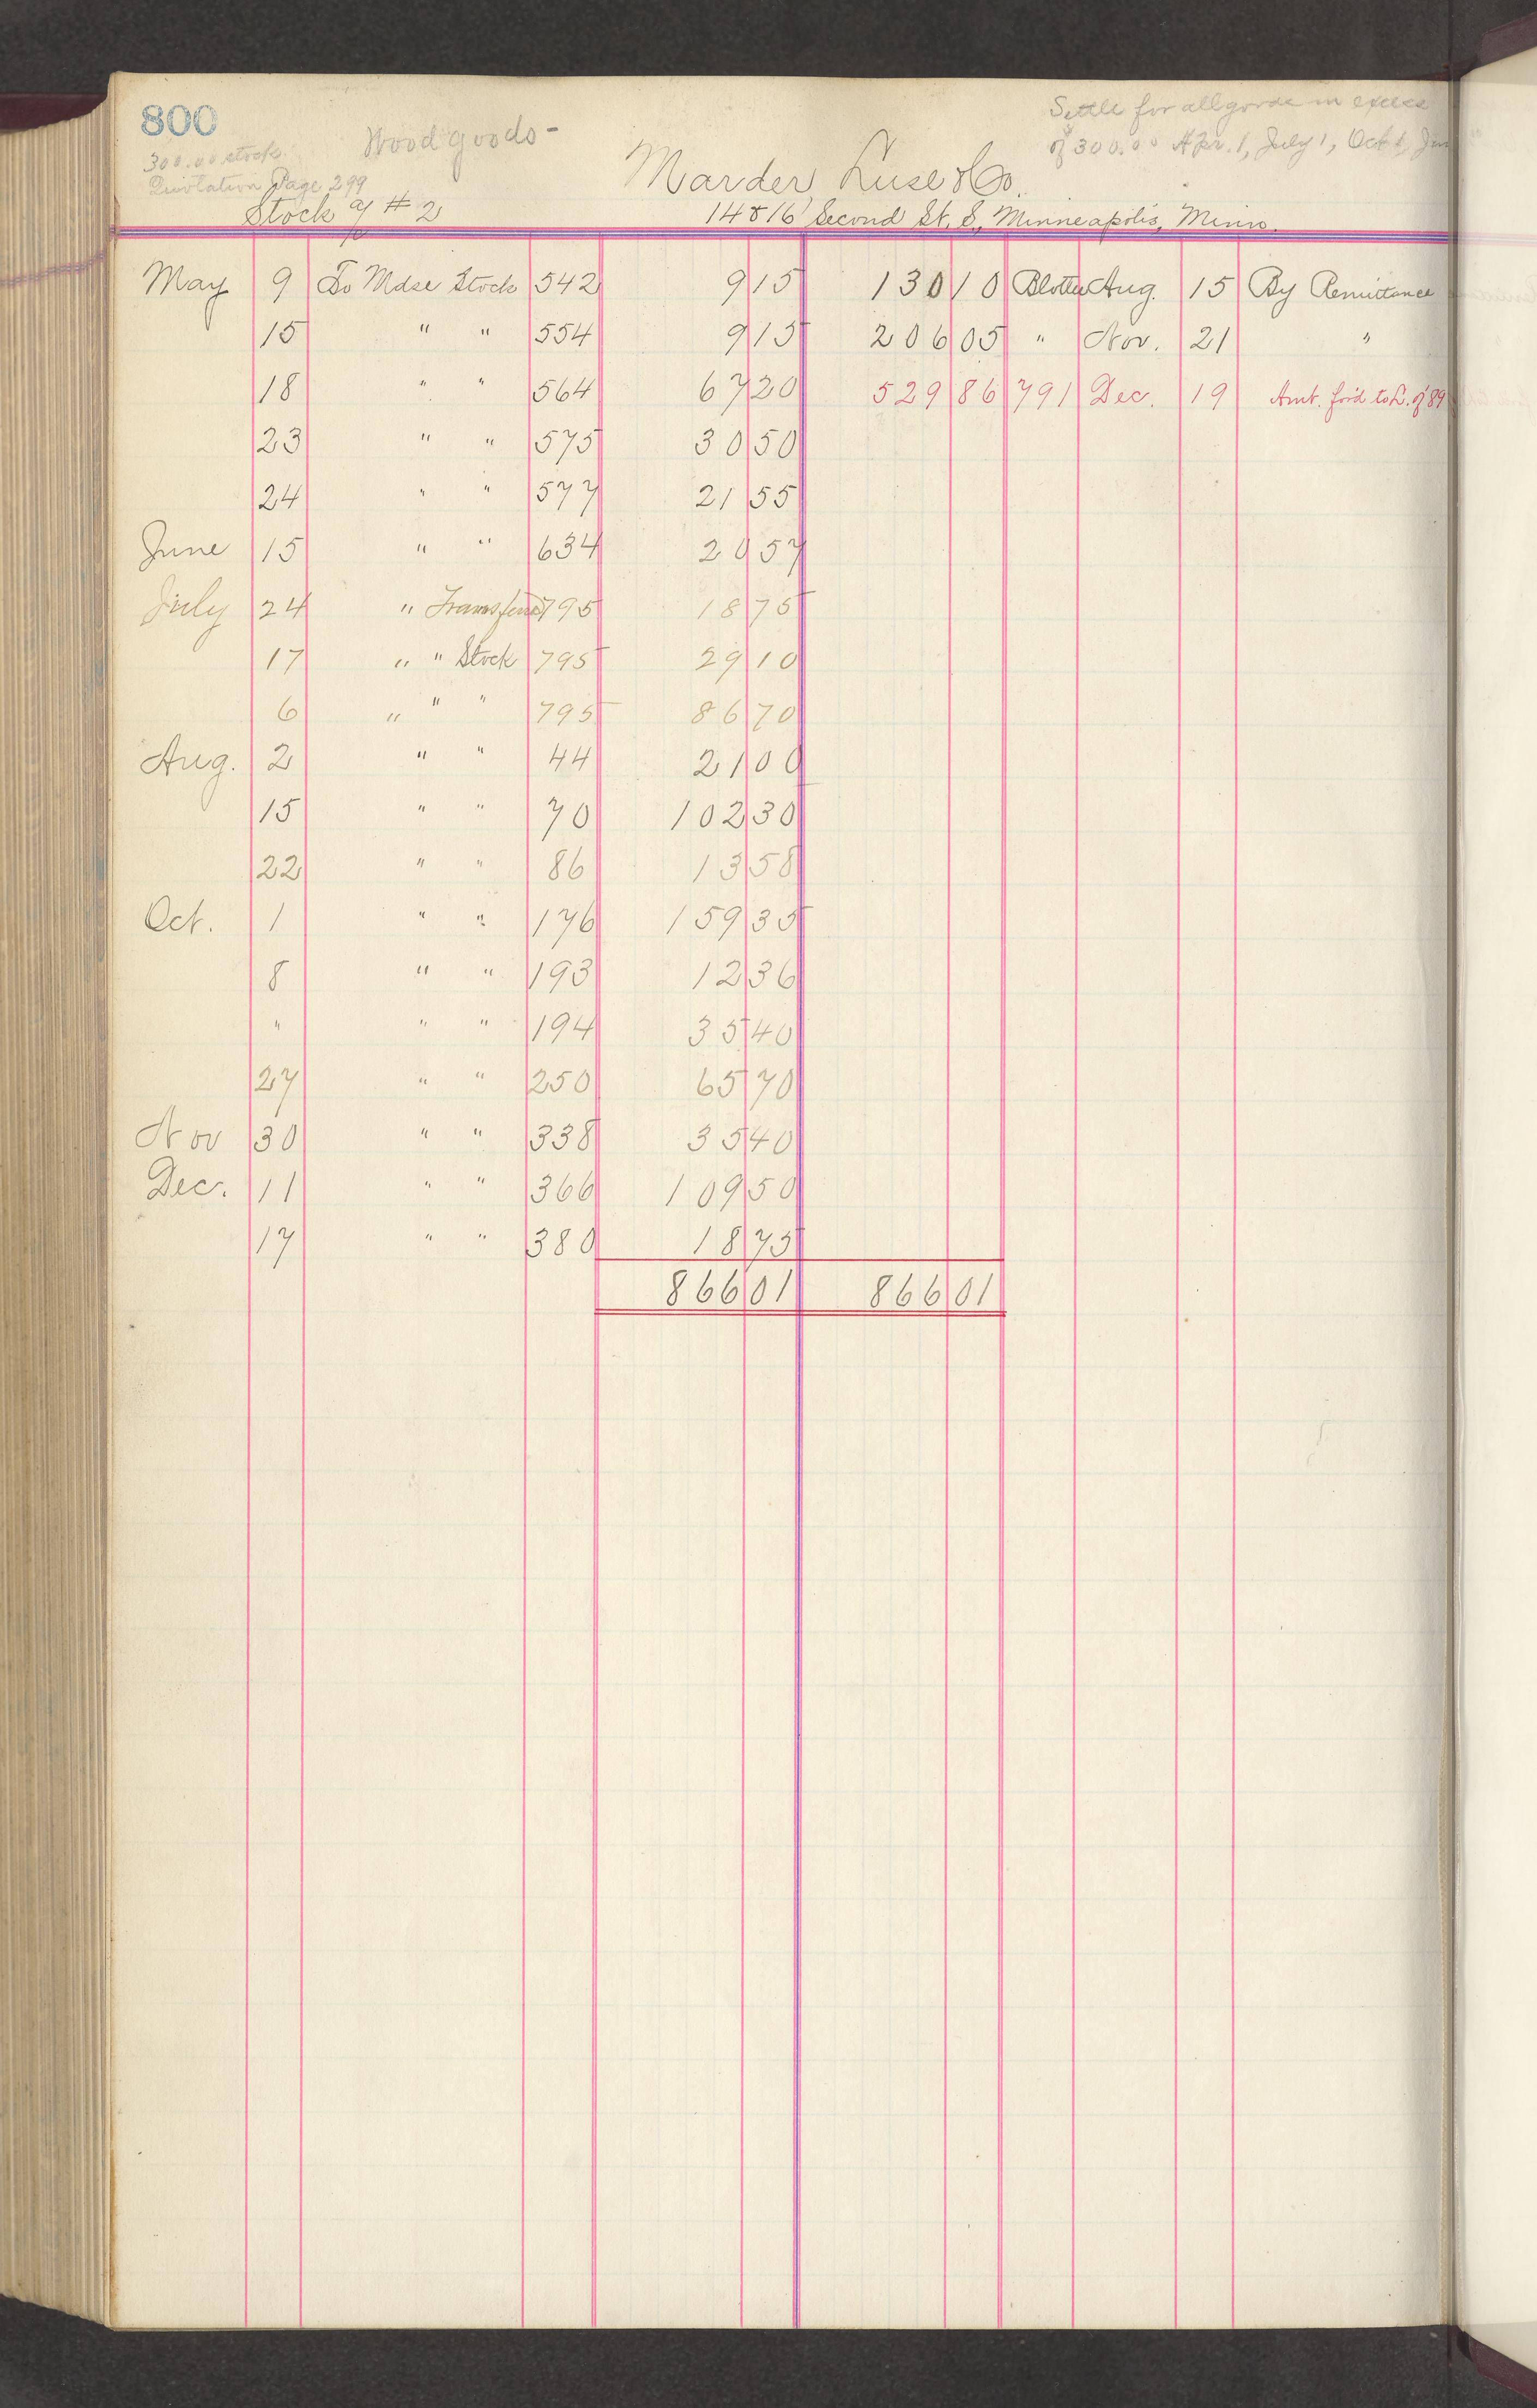 800
Wood goods -
Settle for all goods in excess
of $300.00 Apr. 1, July 1, Oct 1, Jan
300.00 stock
Quotation Page 299
Marder, Luse & Co.
Stock a/c # 2
14 & 16 Second St. S., Minneapolis, Minn.
May 9 To Mdse Stock 542 9 15 130 10 Blotter Aug. 15 By Remittance
15 " " 554 9 15 206 05 " Nov. 21 "
18 " " 564 67 20 529 86 791 Dec. 19 Amt. for'd to L. of '89
23 " " 575 30 50
24 " " 577 21 55
June 15 " " 634 20 57
July 24 " Transferred 795 18 75
17 " " Stock 795 29 10
6 " " " 795 86 70
Aug. 2 " " 44 21 00
15 " " 70 102 30
22 " " 86 13 58
Oct. 1 " " 176 159 35
8 " " 193 12 36
" " " 194 35 40
27 " " 250 65 70
Nov 30 " " 338 35 40
Dec. 11 " " 366 109 50
17 " " 380 18 75
866 01 866 01